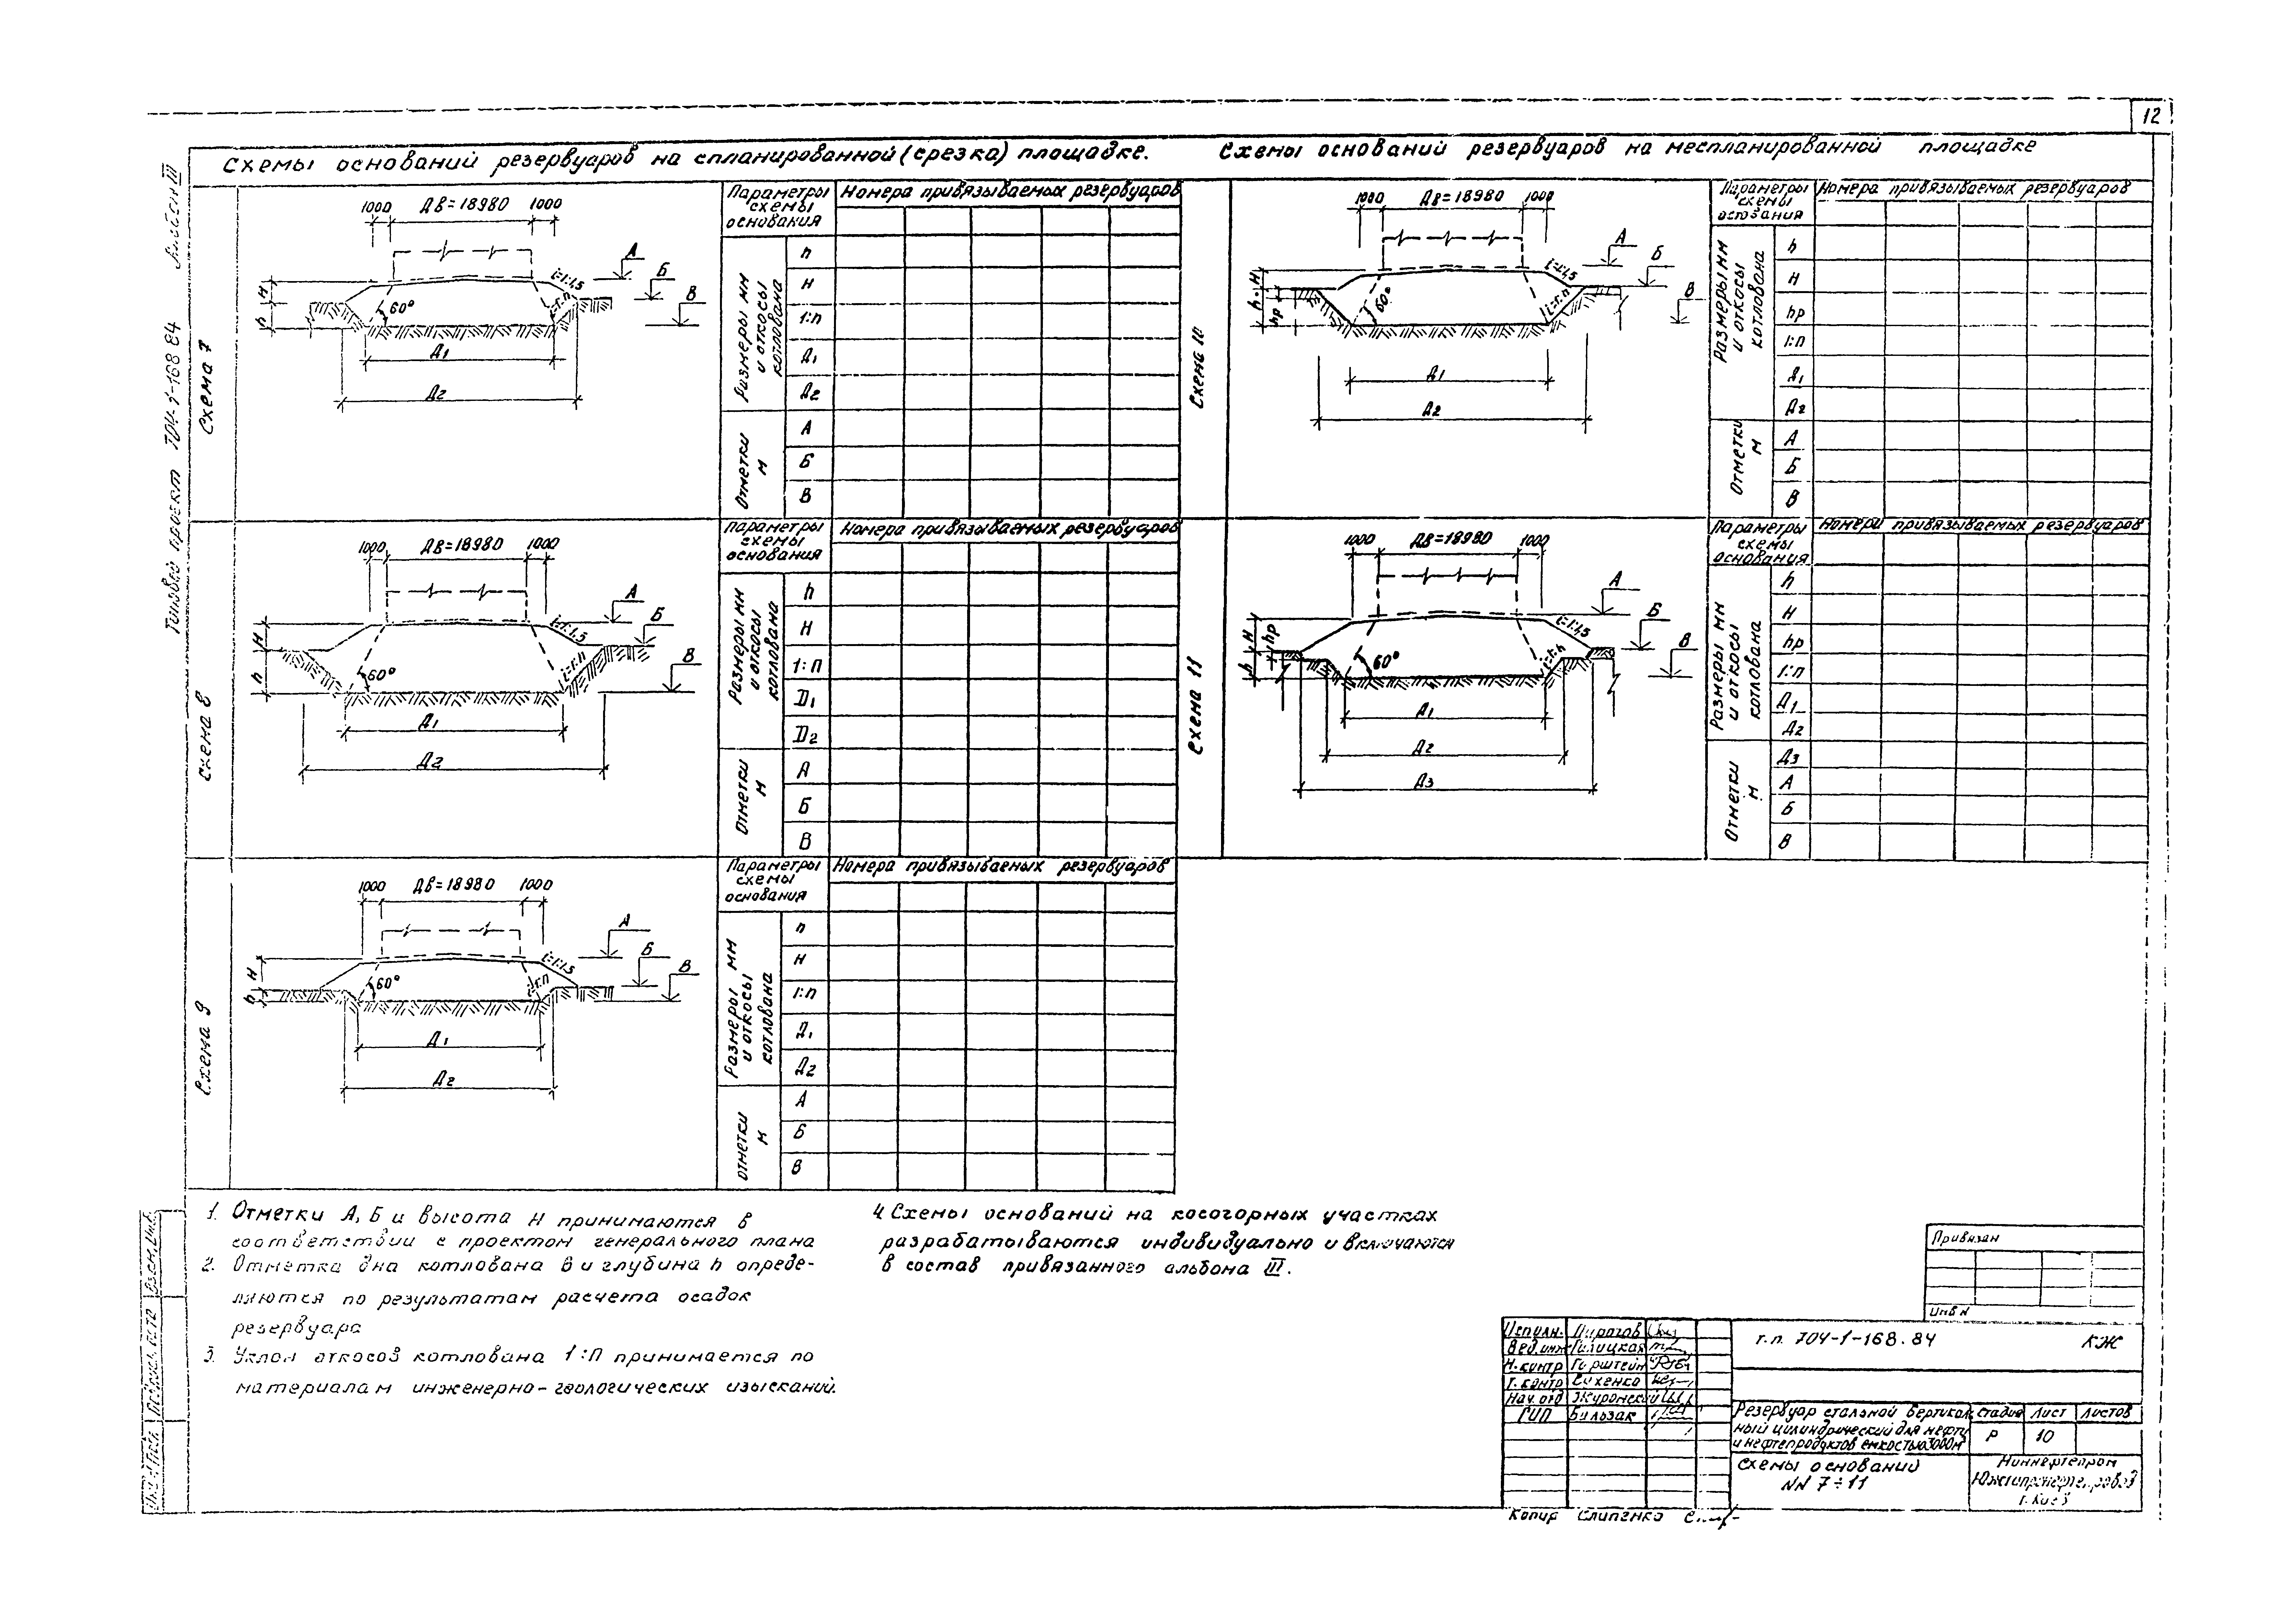 12
Схемы оснований резервуаров на спланированной (срезка) площадке.
Схемы оснований резервуаров на неспланированной площадке
Типовой проект 704-1-168.84 Альбом III
Схема 7
1000 Дв=18980 1000
А
Б
В
i=1:1,5
i=1:п
Н
h
60°
Д1
Д2
Параметры схемы основания
Номера привязываемых резервуаров
Размеры мм и откосы котлована
h
Н
1:п
Д1
Д2
Отметки м
А
Б
В
Схема 8
1000 Дв=18980 1000
А
Б
В
i=1:1,5
i=1:п
Н
h
60°
Д1
Д2
Параметры схемы основания
Номера привязываемых резервуаров
Размеры мм и откосы котлована
h
Н
1:п
D1
D2
Отметки м
А
Б
В
Схема 9
1000 Дв=18980 1000
А
Б
В
i=1:1,5
i=1:п
Н
h
60°
Д1
Д2
Параметры схемы основания
Номера привязываемых резервуаров
Размеры мм и откосы котлована
h
Н
1:п
Д1
Д2
отметки м
А
Б
В
Схема 10
1000 Дв=18980 1000
А
Б
В
i=1:1,5
i=1:п
Н
h
hр
60°
Д1
Д2
Параметры схемы основания
Номера привязываемых резервуаров
Размеры мм и откосы котлована
h
Н
hр
1:п
Д1
Д2
Отметки м
А
Б
В
Схема 11
1000 Дв=18980 1000
А
Б
В
i=1:1,5
i=1:п
Н
hр
h
60°
Д1
Д2
Д3
Параметры схемы основания
Номера привязываемых резервуаров
Размеры мм и откосы котлована
h
Н
hр
1:п
Д1
Д2
Д3
Отметки м
А
Б
В
1. Отметки А, Б и высота Н принимаются в
соответствии с проектом генерального плана
2. Отметка дна котлована В и глубина h опреде-
ляются по результатам расчета осадок
резервуара
3. Уклон откосов котлована 1:п принимается по
материалам инженерно-геологических изысканий.
4. Схемы оснований на косогорных участках
разрабатываются индивидуально и включаются
в состав привязанного альбома III.
Привязан
Инв N
Исполн. Пирогов
Вед. инж
Н.контр Гирштейн
Т.контр Сухенко
Нач. отд Журомский
ГИП Бильзак
т.п. 704-1-168.84 КЖ
Резервуар стальной вертикаль
ный цилиндрический для нефти
и нефтепродуктов емкостью 3000м³
Стадия Лист Листов
Р 10
Схемы оснований
NN 7÷11
Миннефтепром
Южгипронефтепровод
г. Киев
Копир Слипенко